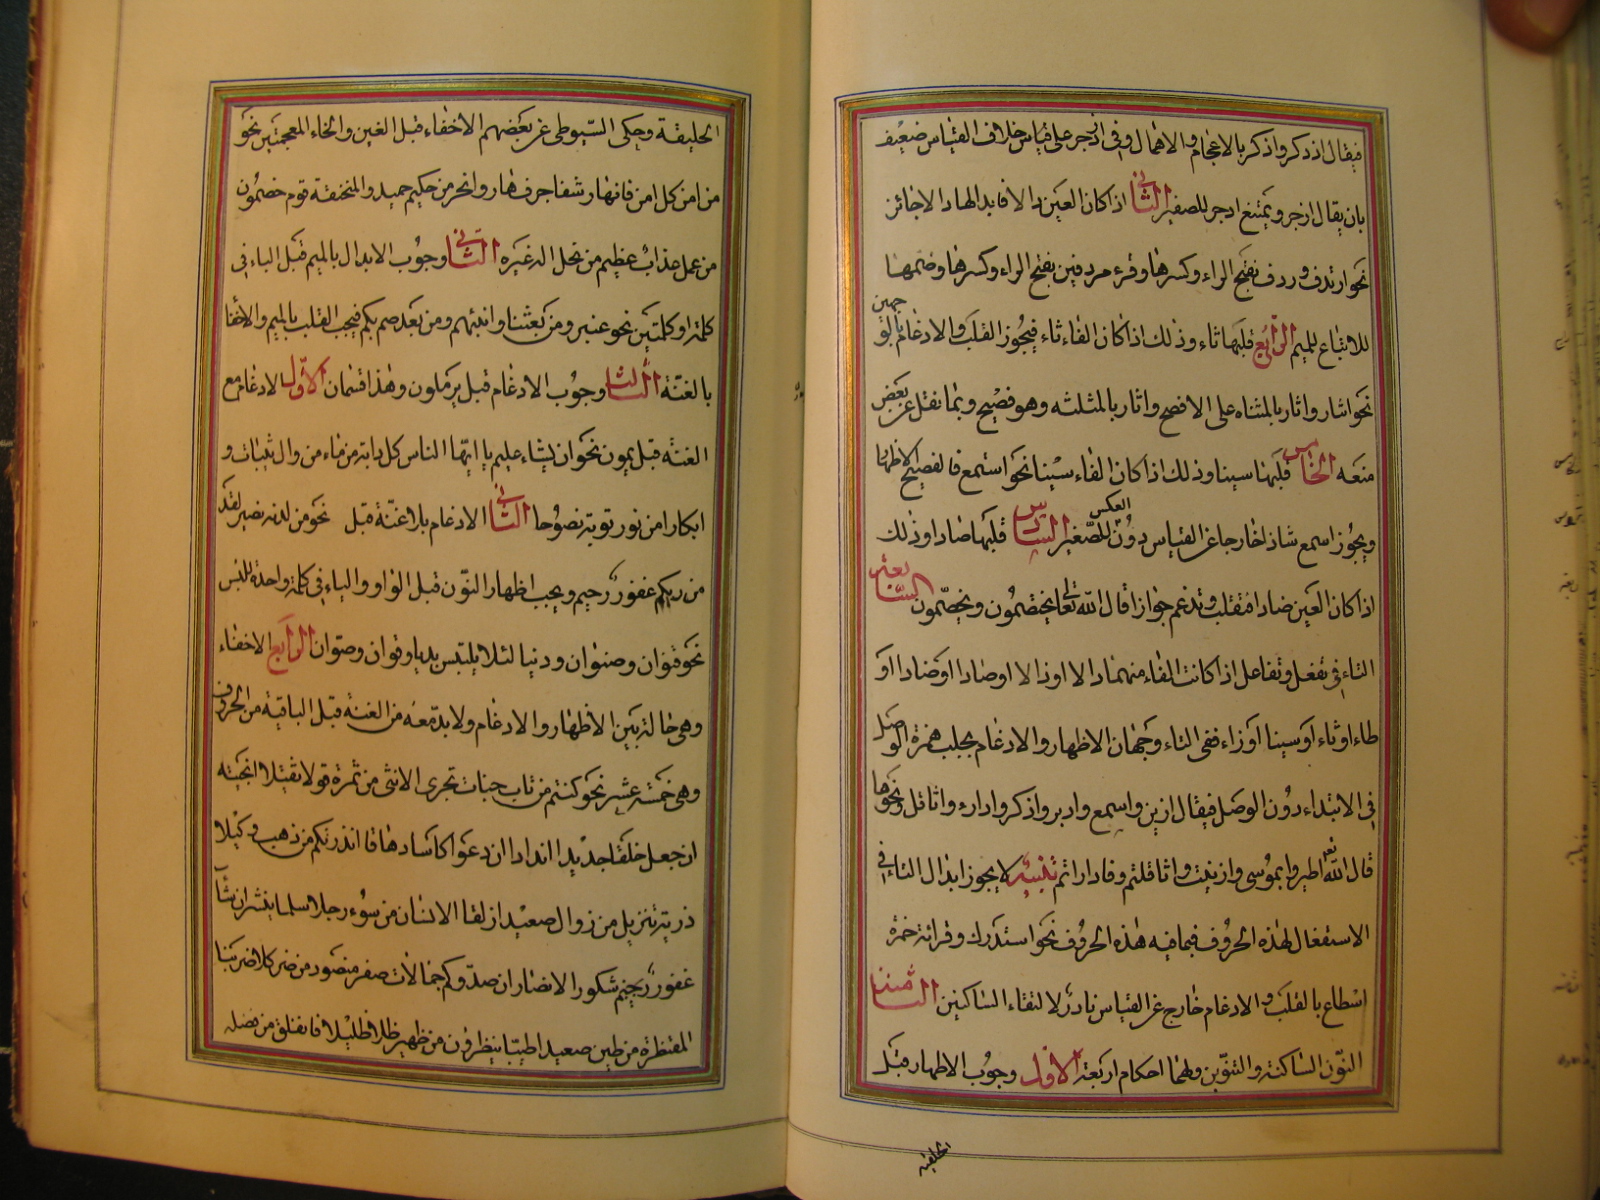 فيقال اذدكر واذكر بالاعجام والاهمال وفى ازجر على قياس خلاف القياس ضعيف
بان يقال ازجر ويمتنع ادجر للصفير الثانى اذا كان العين دالا فابدالها دالا جائز
نحو ارتدف وردف بفتح الراء وكسرها وقرء مردفين بفتح الراء وكسرها وضمها
للاتباع للميم الرابع قلبها ثاء وذلك اذا كان الفاء ثاء فيجوز القلب والادغام بالوجهين
نحو اتار واثار بالمثناه على الافصح واثار بالمثلثه وهو فصيح وبما نقل عن بعض
منعه الخامس قلبها سينا وذلك اذا كان الفاء سينا نحو استمع فالفصيح الاظهار
ويجوز اسمع شاذا خارجا عن القياس دون العكس للصفير السادس قلبها صادا وذلك
اذا كان العين صادا فتقلب وتدغم جوازا قال الله تعا يختصمون ويخصمون السابعة
التاء فى تفعل وتفاعل اذا كانت الفاء منهما دالا او ذالا او صادا او ضادا او
طاء او ثاء او سينا او زاء ففى التاء وجهان الاظهار والادغام بجلب همزة الوصل
فى الابتداء دون الوصل فيقال ازين واسمع وادبر واذكر وادارء واثاقل ونحوها
قال الله تع اطيروا بموسى وازينت واثاقلتم وفادارأتم تنبيه لا يجوز ابدال التاء فى
الاستفعال لهذه الحروف فيما فيه هذه الحروف نحو استدرك وقرائة حمزة
اسطاع بالقلب والادغام خارج عن القياس نادر لالتقاء الساكنين الثامنة
النون الساكنة والتنوين ولهما احكام اربعة الاول وجوب الاظهار قبل
الحلقية
الحليقة وحكى السيوطى عن بعضهم الاخفاء قبل الغين والخاء المعجمتين نحو
من امن كل امن فانهار شفا جرف هار وانحر من حكيم حميد والمنخنقة قوم خصمون
من عمل عذاب عظيم من غل اله غيره الثانى وجوب الابدال بالميم قبل الباء فى
كلمة او كلمتين نحو عنبر ومن بعثنا وانبئهم ومن بعد صم بكم فيجب القلب بالميم والاخفا
بالغنة الثالث وجوب الادغام قبل يرملون وهذا قسمان الاول الادغام مع
الغنة قبل يمون نحو ان يشاء عليم يا ايها الناس كل دابة من ماء من وال ثيبات و
ابكارا من نور توبة نصوحا الثانى الادغام بلا غنة قبل نحو من لدنه نصير لقد
من ربكم غفور رحيم ويجب اظهار النون قبل الواو والياء فى كلمة واحدة للبس
نحو قنوان وصنوان ودنيا لئلا يلتبس بديا وقوان وصوان الرابع الاخفاء
وهى حالة بين الاظهار والادغام ولابد معه من الغنة قبل الباقية من الحروف
وهى خمسة عشر نحو كنتم من تاب جنات تجرى الانثى من ثمرة قولا ثقيلا انجيته
ان جعل خلقا جديدا اندادا ان دعوا كاسا دهاقا انذرتكم من ذهب وكيلا
ذرية تنزيل من زوال صعيدا زلقا الانسان من سوء رجلا سلما ينشر ان شاء
غفور شكور الانصار ان صدوكم جمالات صفر منضود من ضر كلا ضربنا
المقنطرة من طين صعيدا طيبا ينظرون من ظهير ظلا ظليلا فانفلق من فضله